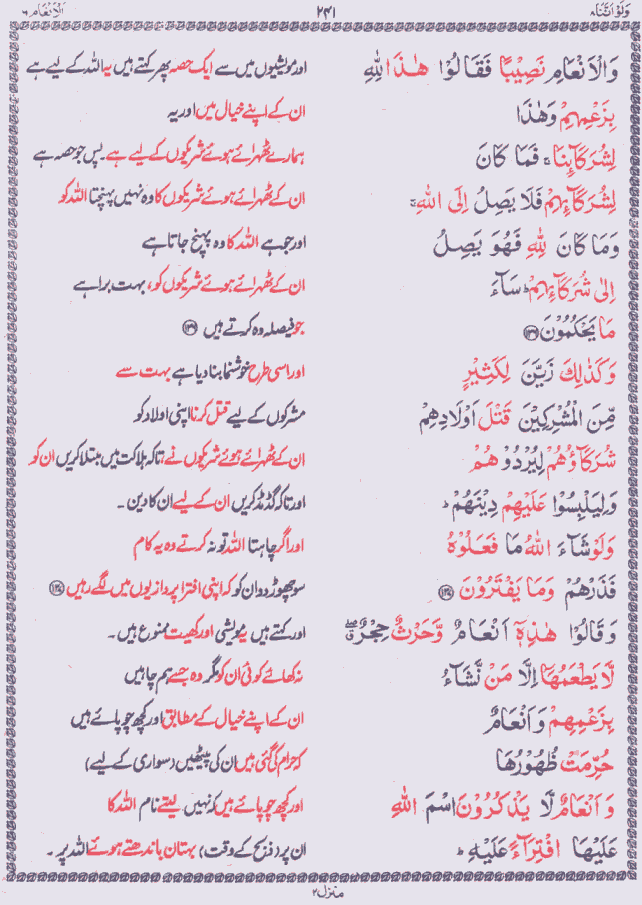 وَلَوْ اَنَّنَا ۸
۲۴۱
الْاَنْعَام ۶
وَالْاَنْعَامِ نَصِيْبًا فَقَالُوْا هٰذَا لِلّٰهِ اور مویشیوں میں سے ایک حصہ پھر کہتے ہیں یہ اللہ کے لیے ہے
بِزَعْمِهِمْ وَهٰذَا ان کے اپنے خیال میں اور یہ
لِشُرَكَآئِنَا ۚ فَمَا كَانَ ہمارے ٹھہرائے ہوئے شریکوں کے لیے ہے۔ پس جو حصہ ہے
لِشُرَكَآئِهِمْ فَلَا يَصِلُ اِلَى اللّٰهِ ۚ ان کے ٹھہرائے ہوئے شریکوں کا وہ نہیں پہنچتا اللہ کو
وَمَا كَانَ لِلّٰهِ فَهُوَ يَصِلُ اور جو ہے اللہ کا وہ پہنچ جاتا ہے
اِلٰى شُرَكَآئِهِمْ ؕ سَآءَ ان کے ٹھہرائے ہوئے شریکوں کو، بہت برا ہے
مَا يَحْكُمُوْنَ ۱۳۶ جو فیصلہ وہ کرتے ہیں ۱۳۶
وَكَذٰلِكَ زَيَّنَ لِكَثِيْرٍ اور اسی طرح خوشنما بنا دیا ہے بہت سے
مِّنَ الْمُشْرِكِيْنَ قَتْلَ اَوْلَادِهِمْ مشرکوں کے لیے قتل کرنا اپنی اولاد کو
شُرَكَآؤُهُمْ لِيُرْدُوْهُمْ ان کے ٹھہرائے ہوئے شریکوں نے، تاکہ ہلاکت میں مبتلا کریں ان کو
وَلِيَلْبِسُوْا عَلَيْهِمْ دِيْنَهُمْ ؕ اور تاکہ گڈمڈ کریں ان کے لیے ان کا دین۔
وَلَوْ شَآءَ اللّٰهُ مَا فَعَلُوْهُ اور اگر چاہتا اللہ تو نہ کرتے وہ یہ کام
فَذَرْهُمْ وَمَا يَفْتَرُوْنَ ۱۳۷ سو چھوڑ دو ان کو کہ اپنی افترا پردازیوں میں لگے رہیں ۱۳۷
وَقَالُوْا هٰذِهٖٓ اَنْعَامٌ وَّحَرْثٌ حِجْرٌ ۖ اور کہتے ہیں یہ مویشی اور کھیت ممنوع ہیں۔
لَّا يَطْعَمُهَآ اِلَّا مَنْ نَّشَآءُ نہ کھائے کوئی ان کو مگر وہ جسے ہم چاہیں
بِزَعْمِهِمْ وَاَنْعَامٌ ان کے اپنے خیال کے مطابق اور کچھ چوپائے ہیں
حُرِّمَتْ ظُهُوْرُهَا کہ حرام کی گئی ہیں ان کی پیٹھیں (سواری کے لیے)
وَاَنْعَامٌ لَّا يَذْكُرُوْنَ اسْمَ اللّٰهِ اور کچھ چوپائے ہیں کہ نہیں لیتے نام اللہ کا
عَلَيْهَا افْتِرَآءً عَلَيْهِ ؕ ان پر (ذبح کے وقت) بہتان باندھتے ہوئے اللہ پر۔
منزل ۲